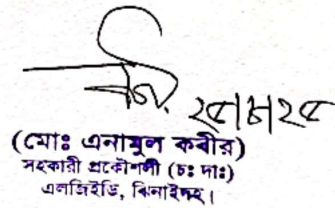 ২৫/৮/২৫
(মোঃ এনামুল কবীর)
সহকারী প্রকৌশলী (চঃ দাঃ)
এলজিইডি, ঝিনাইদহ।